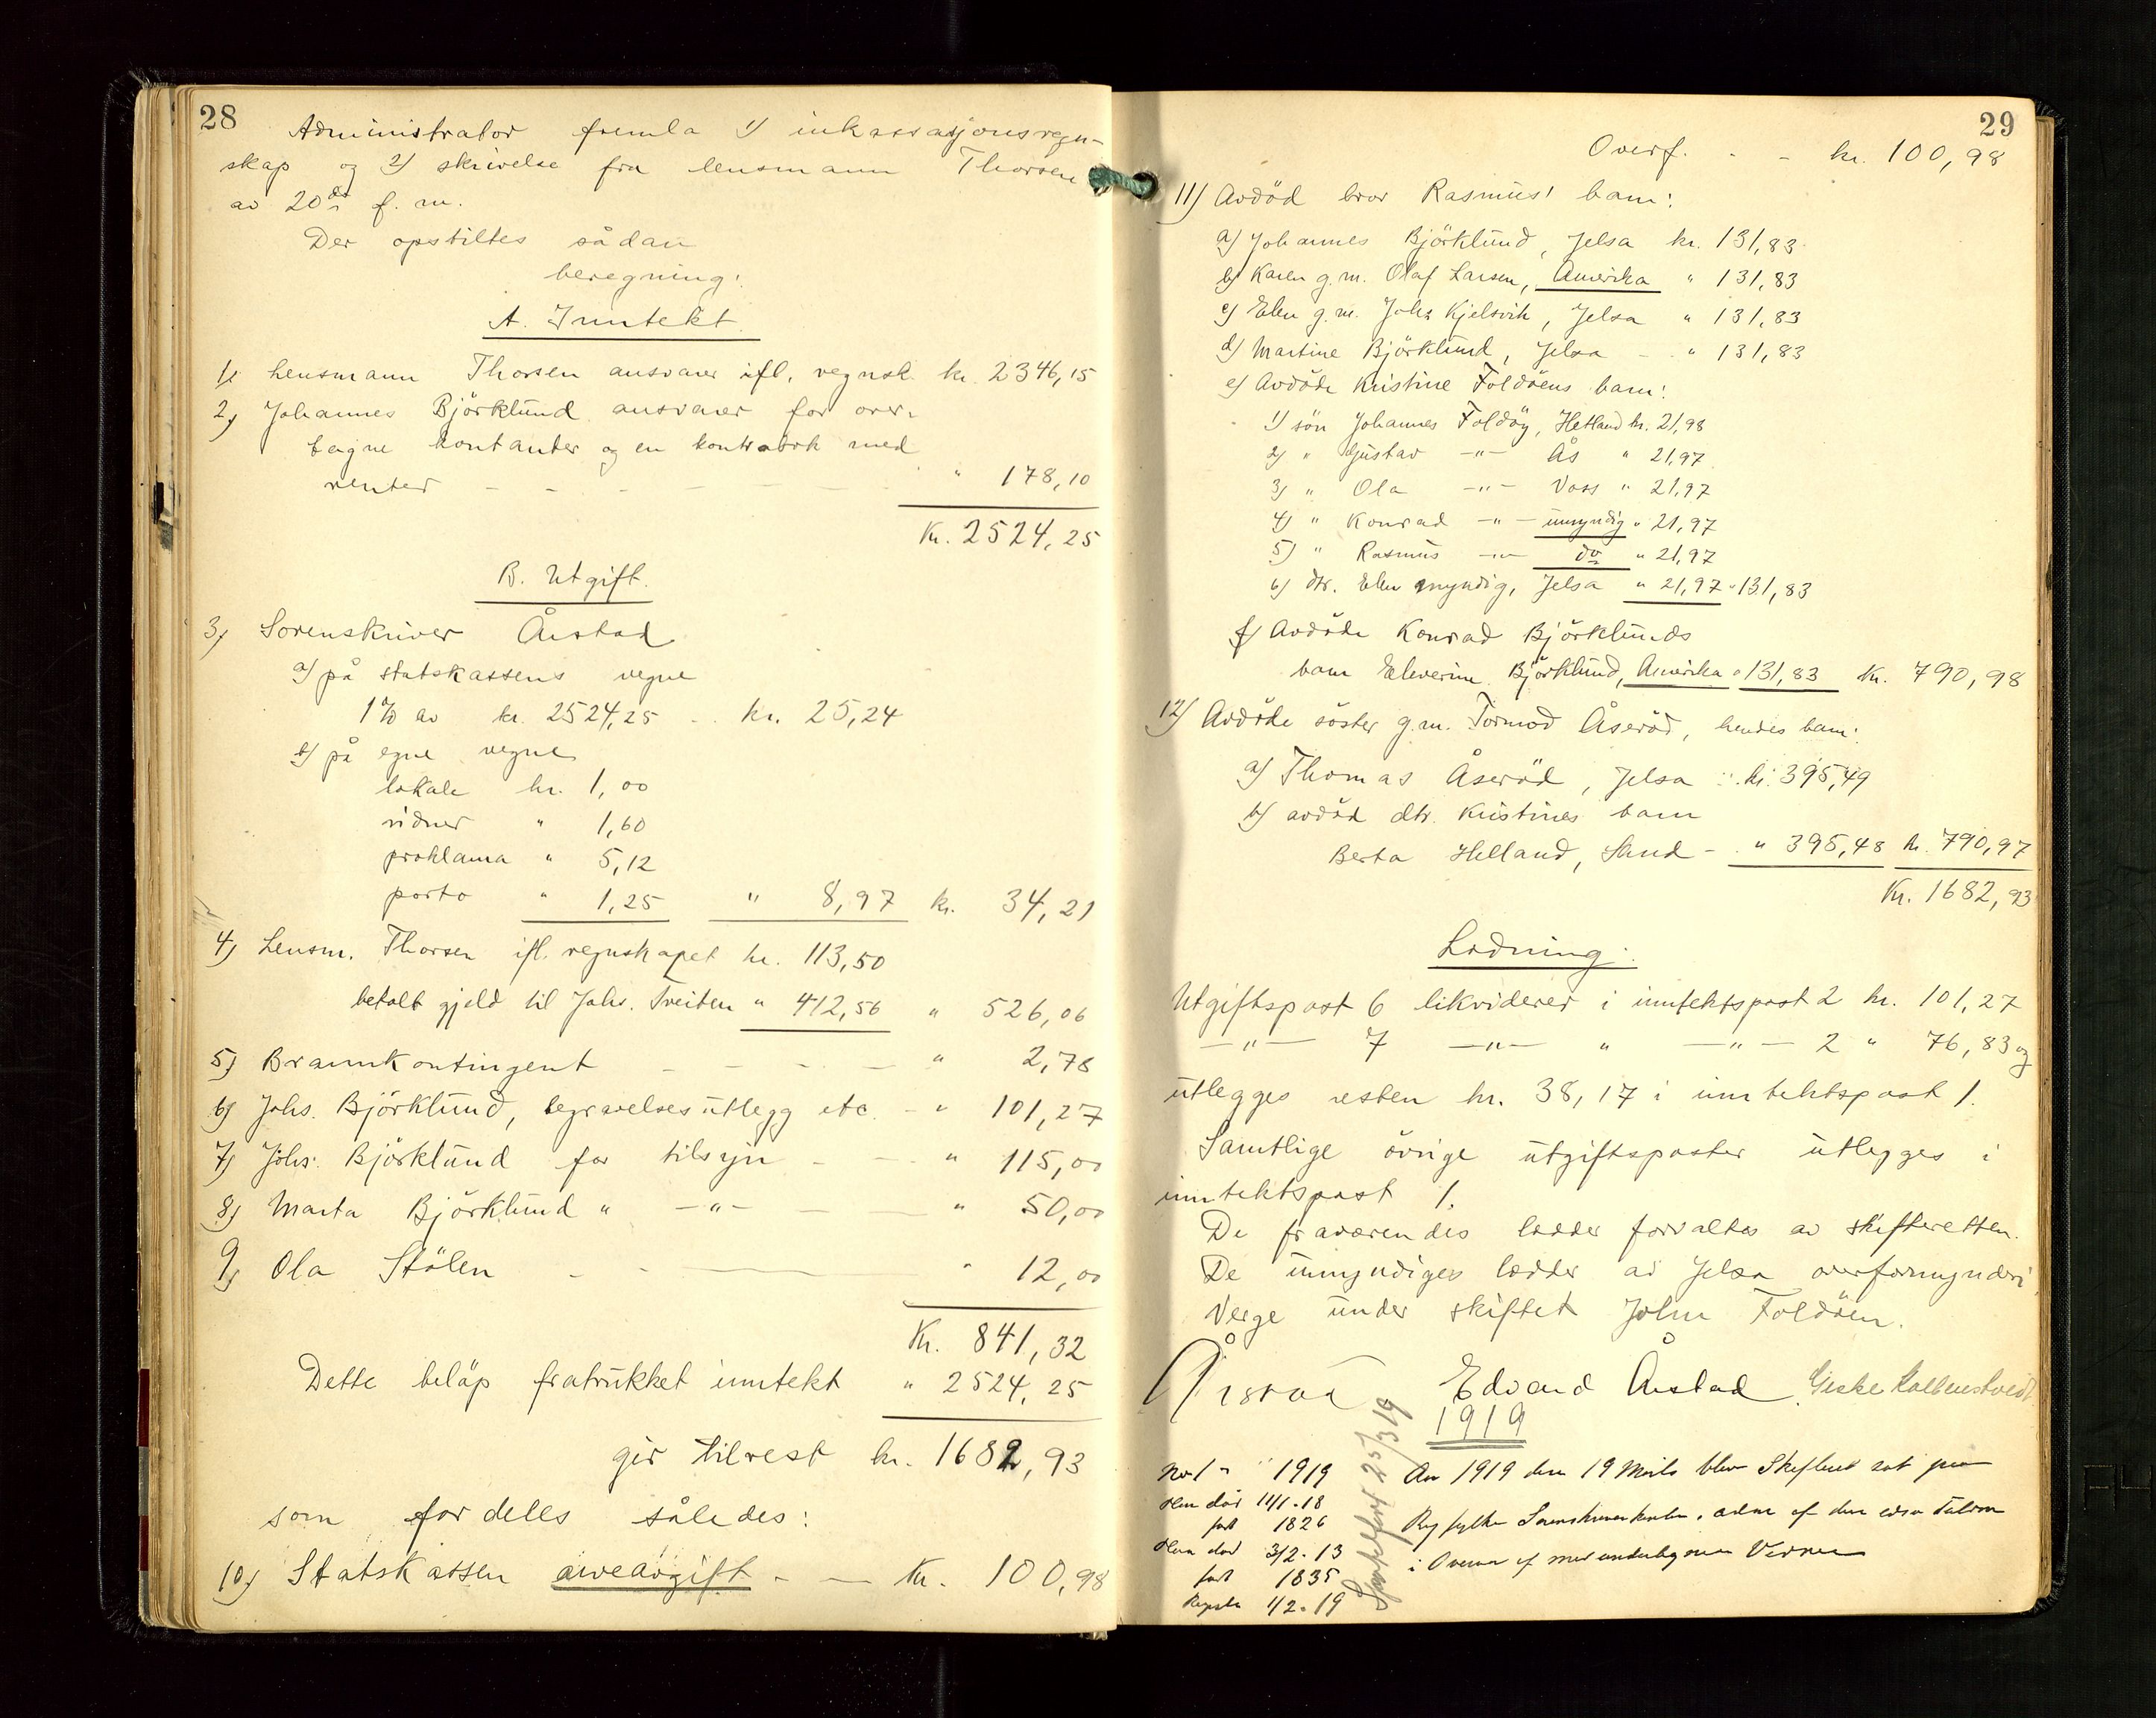 28
Administrator fremla 1) inkassasjonsregn-
skap og 2) skrivelse fra lensmann Thorsen
av 20de f. m.
Der opstiltes sådan
beregning:
A. Inntekt.
1) Lensmann Thorsen ansvarer ifl. regnsk. kr. 2346,15
2) Johannes Björklund ansvarer for over-
tagne kontanter og en kontrabok med
renter - - - - - - " 178,10
Kr. 2524,25
B. Utgift.
3) Sorenskriver Årstad
a) på statskassens vegne
1% av kr. 2524,25 - - kr. 25,24
b) på egne vegne
lokale kr. 1,00
vidner " 1,60
proklama " 5,12
porto " 1,25 " 8,97 kr. 34,21
4) Lensm. Thorsen ifl. regnskapet kr. 113,50
betalt gjeld til Johs. Tveiten " 412,56 " 526,06
5) Brannkontingent - - - - " 2,78
6) Johs. Björklund, begravelsesutlegg etc. - " 101,27
7) Johs. Björklund for tilsyn - - - " 115,00
8) Marta Björklund " -"- - - " 50,00
9) Ola Stölen - - - " 12,00
Kr. 841,32
Dette belöp fratrukket inntekt " 2524,25
gir tilrest kr. 1682,93
som fordeles således:
10) Statskassen arveavgift - - Kr. 100,98
29
Overf. - - kr. 100,98
11) Avdöd bror Rasmus' barn:
a) Johannes Björklund, Jelsa kr. 131,83
b) Karen g.m. Olaf Larsen, Amerika " 131,83
c) Elen g.m. Johs Kjelsvik, Jelsa " 131,83
d) Martine Björklund, Jelsa - " 131,83
e) Avdöde Kristine Foldöens barn:
1) sön Johannes Foldöy, Hetland kr. 21,98
2) " Gustav -"- Ås " 21,97
3) " Ola -"- Voss " 21,97
4) " Konrad -"- umyndig " 21,97
5) " Rasmus -"- do " 21,97
6) dtr. Elen myndig, Jelsa " 21,97 " 131,83
f) Avdöde Konrad Björklunds
barn Elverine Björklund, Amerika " 131,83 Kr. 790,98
12) Avdöde söster g.m. Tormod Åseröd, hendes barn:
a) Thomas Åseröd, Jelsa - kr. 395,49
b) avdöd dtr. Kristines barn
Berta Helland, Sand - " 395,48 kr. 790,97
Kr. 1682,93
Lodning:
Utgiftspost 6 likviderer i inntektspost 2 kr. 101,27
-"- 7 -"- " -"- 2 " 76,83 og
utlegges resten kr. 38,17 i inntektspost 1.
Samtlige övrige utgiftsposter utlegges i
inntektspost 1.
De fraværendes lodder forvaltes av skifteretten.
De umyndiges lodder av Jelsa overformynderi
Verge under skiftet John Foldöen.
Årstad Edvard Årstad.
1919
No 1 - 1919 An 1919 den 19 Marts blev Skifteret sat paa
Han död 11/1-18
født 1826 Ryfylke Sorenskriverkontor,
Hun död 3/2-13 i Overvær af medundertegnede Vidner
født 1835
Regstr 1/2-19
25/3 19